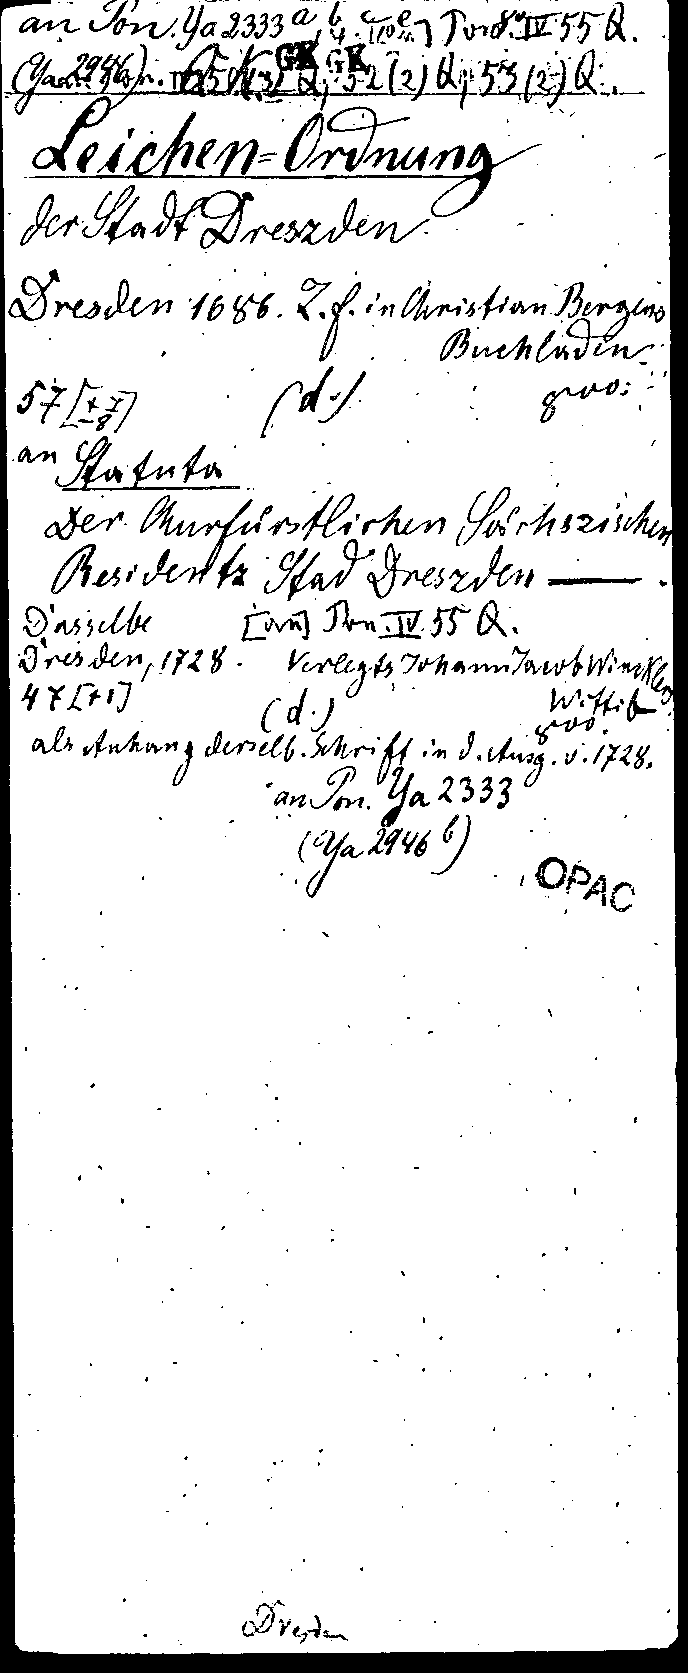 an Pon. Ya 2333 a, b, c, e Pon. IV 55 Q.
(Ya 2946) GK GK 52 (2) Q, 53 (2) Q.
Leichen=Ordnung
der Stadt Dreszden.
Dresden 1686. Z. f. in Christian Bergens
Buchladen
57 (d.) 8voo:
an Statuta
Der Churfürstlichen Sächszischen
Residentz Stad Dreszden —.
Dasselbe [an] Pon. IV 55 Q.
Dresden, 1728. Verlegts Johann Jacob Wincklers
Wittib
47 [+1] (d.) 8voo.
als Anhang derselb. Schrift in d. Ausg. v. 1728.
an Pon. Ya 2333
(Ya 2946 b)
OPAC
Dresden